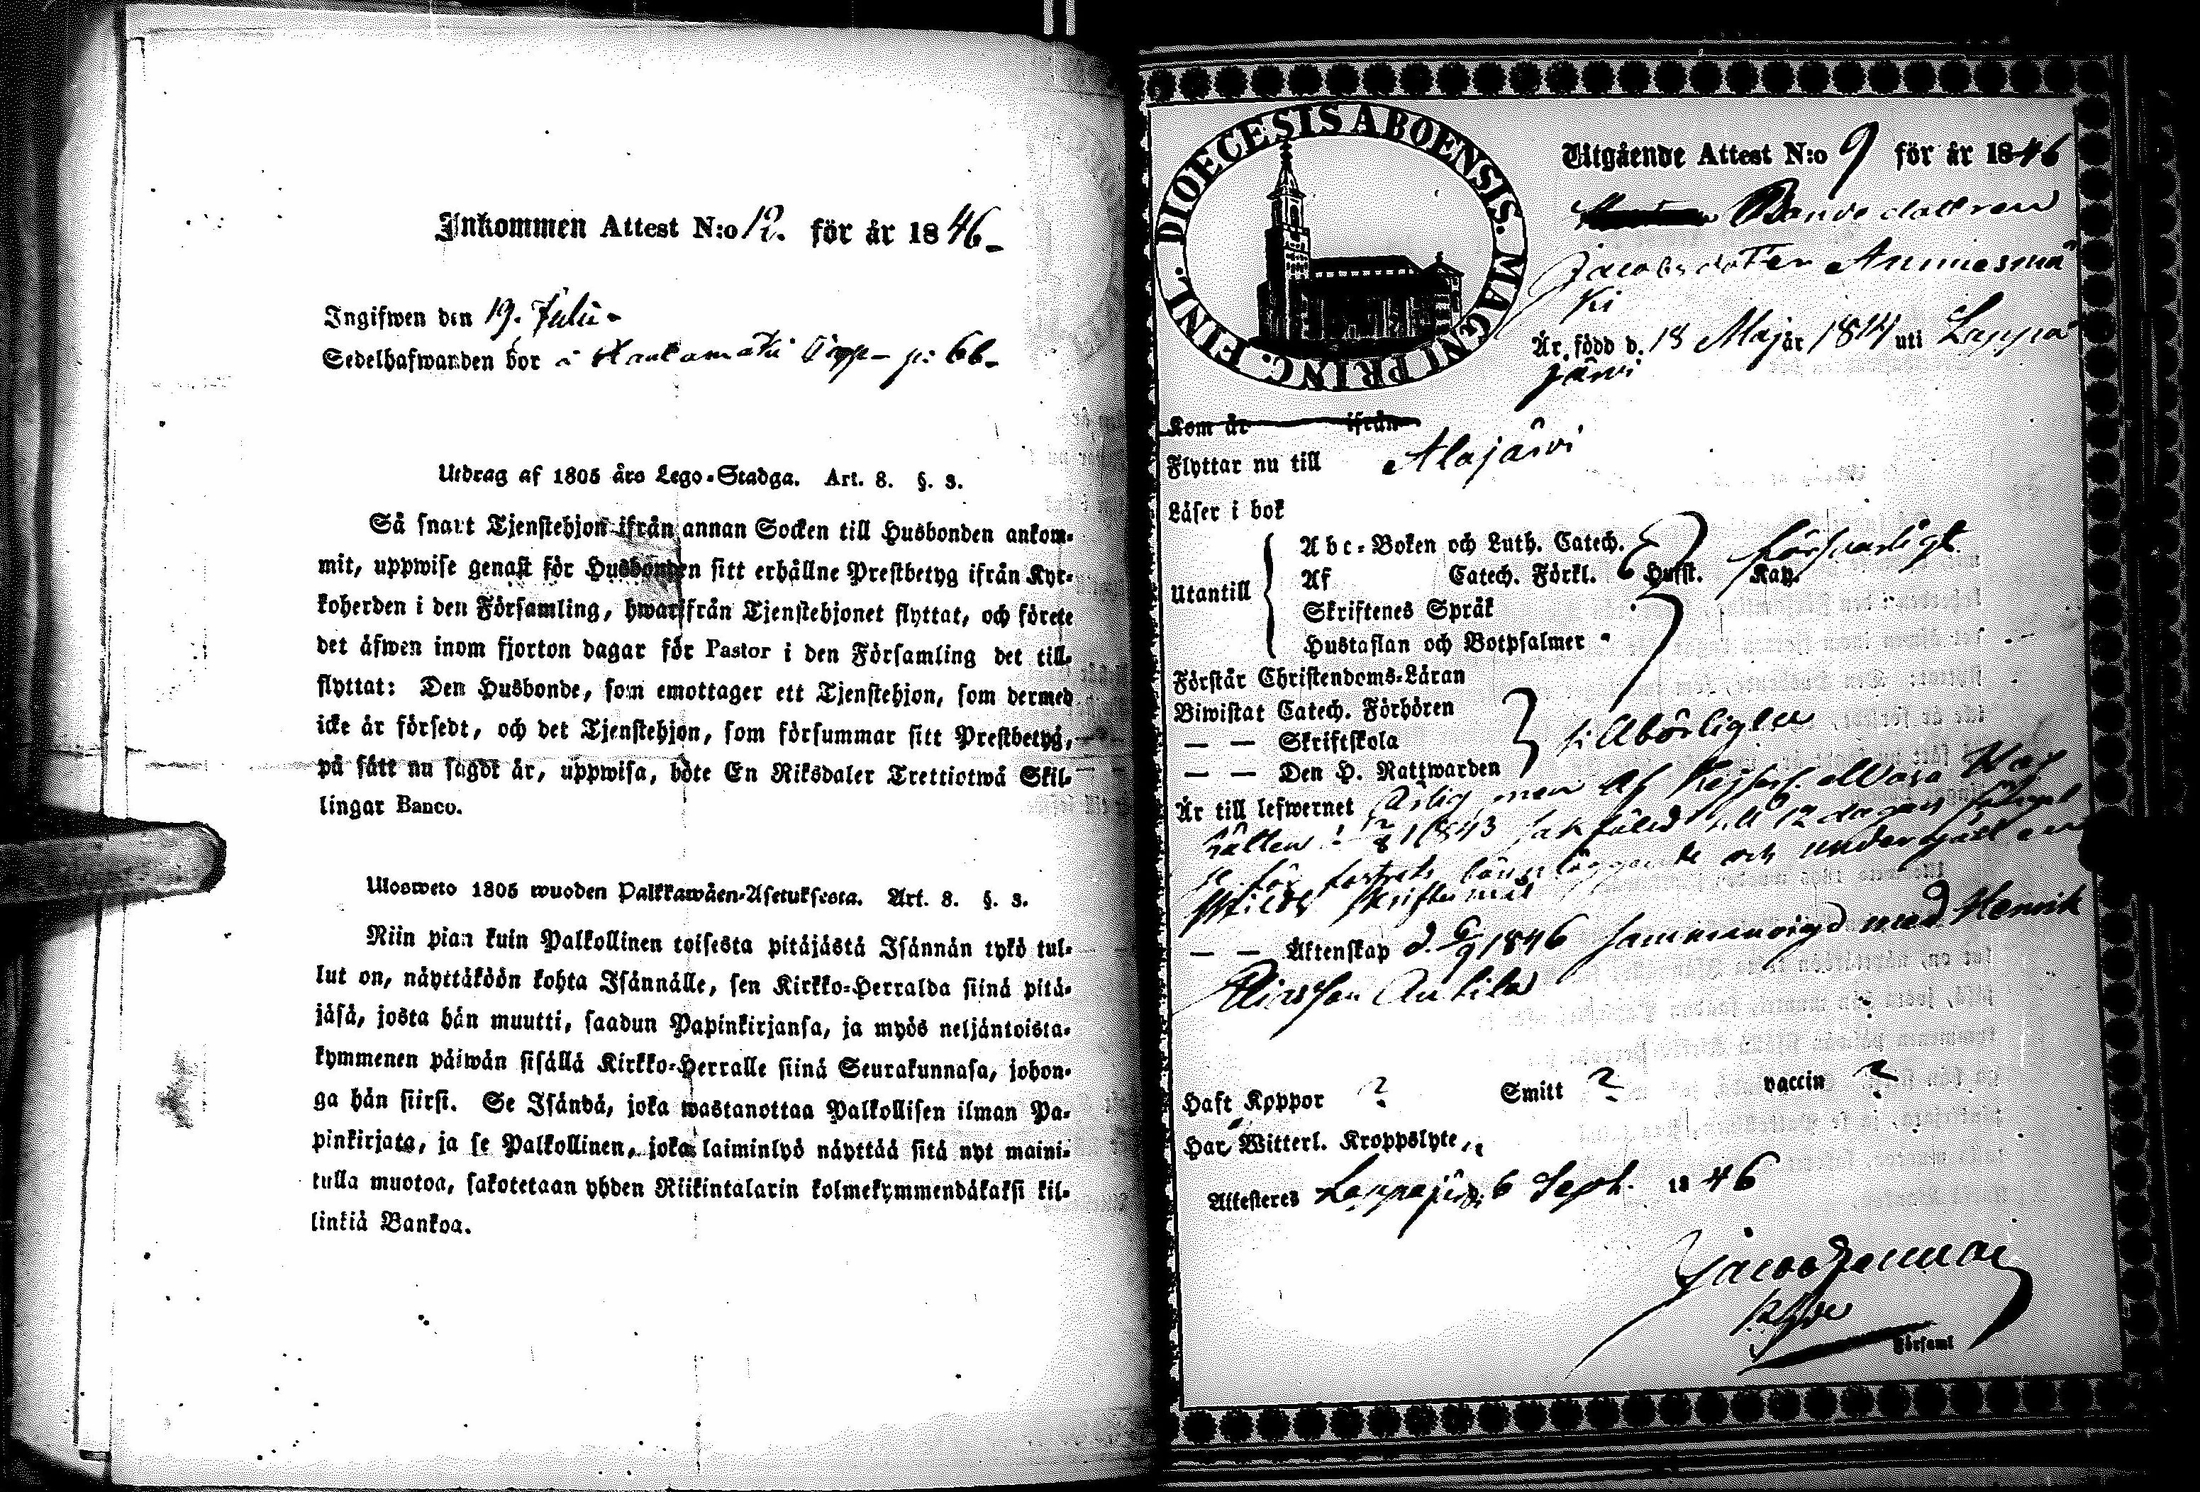 Inkommen Attest N:o 12. för år 1846.
Ingifwen den 19. Julii
Sedelhafwanden bor i p: 66.
Utdrag af 1805 års Lego-Stadga. Art. 8. §. 3.
Så snart Tjenstehjon ifrån annan Socken till Husbonden ankom-
mit, uppwise genast för Husbonden sitt erhållne Prestbetyg ifrån Kyr-
koherden i den Församling, hwarifrån Tjenstehjonet flyttat, och förete
det äfwen inom fjorton dagar för Pastor i den Församling det till-
flyttat: Den Husbonde, som emottager ett Tjenstehjon, som dermed
icke är försedt, och det Tjenstehjon, som försummar sitt Prestbetyg,
på sätt nu sagdt är, uppwisa, böte En Riksdaler Trettiotwå Skil-
lingar Banco.
Ulosweto 1805 wuoden Palkkawäen-Asetuksesta. Art. 8. §. 3.
Niin pian kuin Palkollinen toisesta pitäjästä Isännän tykö tul-
lut on, näyttäköön kohta Isännälle, sen Kirkko-Herralda siinä pitä-
jäsä, josta hän muutti, saadun Papinkirjansa, ja myös neljäntoista-
kymmenen päiwän sisällä Kirkko-Herralle siinä Seurakunnasa, johon-
ga hän siirsi. Se Isändä, joka wastanottaa Palkollisen ilman Pa-
pinkirjata, ja se Palkollinen, joka laiminlyö näyttää sitä nyt maini-
tulla muotoa, sakotetaan yhden Riikintalarin kolmekymmendäkaksi kil-
linkiä Bankoa.
DIOECESIS ABOENSIS. MAGNI PRINC. FINL.
Utgående Attest N:o 9 för år 1846
Bondedottren
Jacobsdotter Anniesmä
ki
Är född d. 18 Maj år 1814 uti Lappa
järvi
Kom år ifrån
Flyttar nu till Alajärvi
Läser i bok
Utantill
Abc-Boken och Luth. Catech.
Af Catech. Förkl. 6 Husst. Kap. försvarligt
Skriftenes Språk
Hustaflan och Botpsalmer
Förstår Christendoms-Läran
Biwistat Catech. Förhören
— — Skriftskola tillbörligen
— — Den H. Nattwarden
Är till lefwernet ärlig, men af Kejserl. Wasa
Rätten 1843 sakfälld till 12 dagars fängel
se för fosters lönnläggande och undergått en
skild skriftermål
— — Äktenskap d. 6/9 1846 sammanvigd med Henrik
Antila
Haft Koppor ? Smitt ? vaccin ?
Har Witterl. Kroppslyte
Attesteres Lappajärvi 6 Sept. 1846
Församl